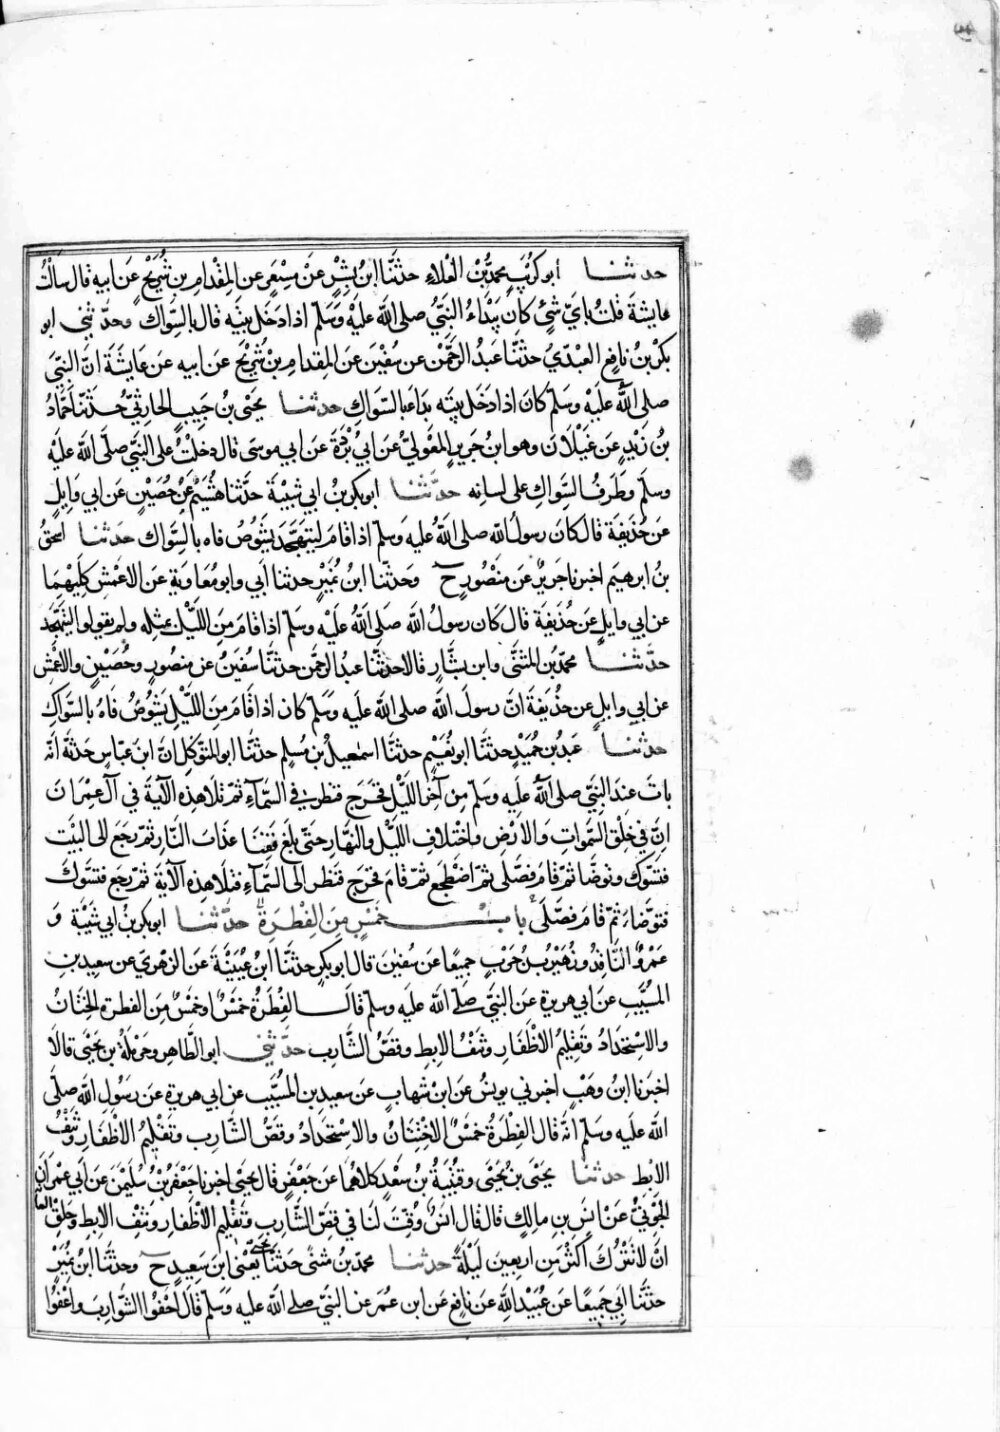 حدثنا ابو كريب محمد بن العلاء حدثنا ابن بشر عن مسعر عن المقدام بن شريح عن ابيه قال سالت
عايشة قلت باي شئ كان يبداء النبي صلى الله عليه وسلم اذا دخل بيته قال بالسواك وحدثني ابو
بكر بن نافع العبدي حدثنا عبد الرحمن عن سفين عن المقدام بن شريح عن ابيه عن عايشة ان النبي
صلى الله عليه وسلم كان اذا دخل بيته بدا بالسواك حدثنا يحيى بن حبيب الحارثي حدثنا حماد
بن زيد عن غيلان وهو ابن جرير المعولي عن ابي بردة عن ابي موسى قال دخلت على النبي صلى الله عليه
وسلم وطرف السواك على لسانه حدثنا ابو بكر بن ابي شيبة حدثنا هشيم عن حصين عن ابي وايل
عن حذيفة قال كان رسول الله صلى الله عليه وسلم اذا قام ليتهجد يشوص فاه بالسواك حدثنا اسحق
بن ابرهيم اخبرنا جرير عن منصور ح وحدثنا ابن نمير حدثنا ابي وابو معاوية عن الاعمش كليهما
عن ابي وايل عن حذيفة قال كان رسول الله صلى الله عليه وسلم اذا قام من الليل بمثله ولم يقولو ليتهجد
حدثنا محمد بن المثنى وابن بشار قالا حدثنا عبد الرحمن حدثنا سفين عن منصور وحصين والاعمش
عن ابي وايل عن حذيفة ان رسول الله صلى الله عليه وسلم كان اذا قام من الليل يشوص فاه بالسواك
حدثنا عبد بن حميد حدثنا ابو نعيم حدثنا اسمعيل بن مسلم حدثنا ابو المتوكل ان ابن عباس حدثه انه
بات عند النبي صلى الله عليه وسلم من آخر الليل فخرج فنظر في السماء ثم تلا هذه الآية في آل عمران
ان في خلق السموات والارض واختلاف الليل والنهار حتى بلغ فقنا عذاب النار ثم رجع الى البيت
فتسوك وتوضا ثم قام فصلى ثم اضطجع ثم قام فخرج فنظر الى السماء فتلا هذه الآية ثم رجع فتسوك
فتوضاء ثم قام فصلى باب خمس من الفطرة حدثنا ابو بكر بن ابي شيبة و
عمرو الناقد وزهير بن حرب جميعا عن سفين قال ابو بكر حدثنا ابن عيينة عن الزهري عن سعيد بن
المسيب عن ابي هريرة عن النبي صلى الله عليه وسلم قال الفطرة خمس او خمس من الفطرة الختان
والاستحداد وتقليم الاظفار ونتف الابط وقص الشارب حدثني ابو الطاهر وحرملة بن يحيى قالا
اخبرنا ابن وهب اخبرني يونس عن ابن شهاب عن سعيد بن المسيب عن ابي هريرة عن رسول الله صلى
الله عليه وسلم انه قال الفطرة خمس الاختتان والاستحداد وقص الشارب وتقليم الاظفار ونتف
الابط حدثنا يحيى بن يحيى وقتيبة بن سعد كلاهما عن جعفر قال يحيى اخبرنا جعفر بن سليمن عن ابي عمران
الجوني عن انس بن مالك قال قال انس وقت لنا في قص الشارب وتقليم الاظفار ونتف الابط وحلق العانة
ان لا نترك اكثر من اربعين ليلة حدثنا محمد بن مثنى حدثنا يحيى يعني ابن سعيد ح وحدثنا ابن نمير
حدثنا ابي جميعا عن عبيد الله عن نافع عن ابن عمر عن النبي صلى الله عليه وسلم قال احفوا الشوارب واعفوا